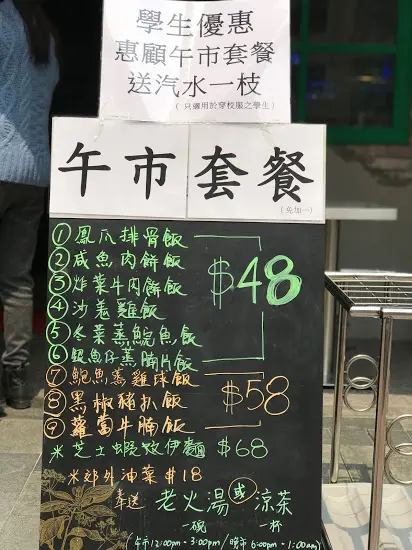 學生優惠
惠顧午市套餐
送汽水一枝
(只適用於穿校服之學生)
午市套餐
(免加一)
①鳳爪排骨飯
②咸魚肉餅飯
③炸菜牛肉餅飯
$48
④沙姜雞飯
⑤冬菜蒸鯇魚飯
⑥鯇魚仔蒸腩片飯
⑦鮑魚蒸雞球飯
⑧黑椒豬扒飯
$58
⑨蘿蔔牛腩飯
米芝士蝦放伊麵 $68
米郊外油菜 $18
奉送 老火湯 或 涼茶
一碗 一杯
(午市12:00pm - 3:00pm / 晚市 6:00pm - 1:00am)